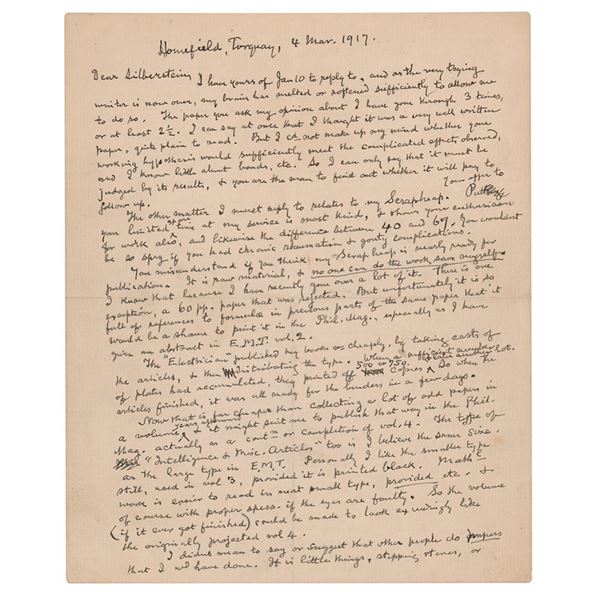 Homefield, Torquay, 4 Mar. 1917.
Dear Silberstein, I have yours of Jan 10 to reply to, and as the very trying
winter is now over, my brain has melted or softened sufficiently to allow me
to do so. The paper you ask my opinion about I have gone through 3 times,
or at least 2½. I can say at once that I thought it was a very well written
paper, quite plain to read. But I cd not make up my mind whether your
working hypothesis would sufficiently meet the complicated effects observed,
and I know little about bands, etc. So I can only say that it must be
judged by its results, & you are the man to find out whether it will pay to
follow up.
The other matter I must reply to relates to my Scrapheap. Your offer to
your limited spare time at my service is most kind, & shows your enthusiasm
for work also, and likewise the difference between 40 and 67. You wouldnt
be so spry if you had chronic rheumatism & gouty complications.
You misunderstand if you think my Scrap heap is nearly ready for
publication. It is raw material, & no one can do the work save myself.
I know that because I have recently gone over a lot of it. There is one
exception, a 60 pp. paper that was rejected. But unfortunately it is so
full of references to formulæ in previous parts of the same paper that it
would be a shame to print it in the Phil. Mag., especially as I have
given an abstract in E.M.T. vol. 2.
The "Electrician" published my books so cheaply, by taking casts of
the articles, & then distributing the type. When a sufficient number
of plates had accumulated, they printed off 500 or 750 copies, then another lot. So when the
articles finished, it was all ready for the binders in a few days.
Now that is far cheaper than collecting a lot of odd papers in
a volume, & it might suit me to publish that way in the Phil.
Mag. actually as a contn or completion of vol. 4. The type of
"Intelligence & Misc. Articles" too is I believe the same size
as the large type in E.M.T. Personally I like the smaller type
still, used in vol 3, provided it is printed black. Mathl
work is easier to read in neat small type, provided etc. &
of course with proper specs. if the eyes are faulty. So the volume
(if it ever got finished) could be made to look exceedingly like
the originally projected vol 4.
I didnt mean to say or suggest that other people do papers
that I wd have done. It is little things, stepping stones, or